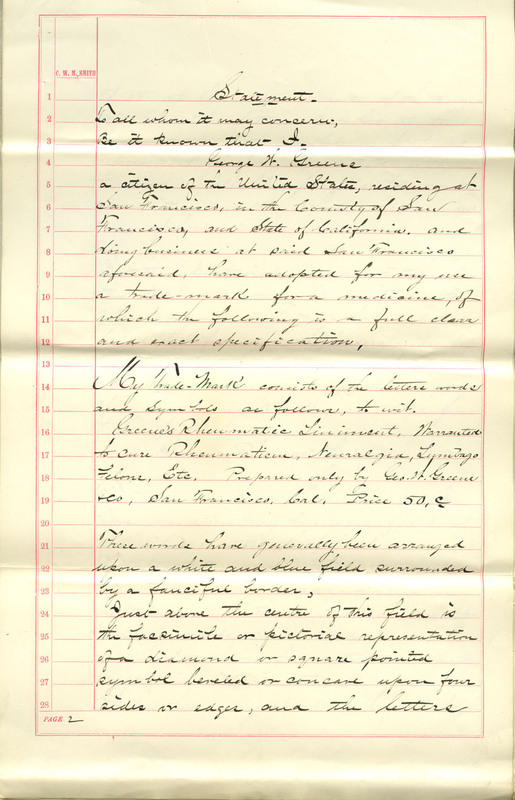 C. W. M. SMITH
Statement.
1
To all whom it may concern,
2
Be it known that I-
3
George W. Greene
4
a citizen of the United States, residing at
5
San Francisco, in the County of San
6
Francisco, and State of California. and
7
doing business at said San Francisco
8
aforesaid, have adopted for my use
9
a trade-mark for a medicine, of
10
which the following is a full clear
11
and exact specification.
12
13
My Trade-Mark consists of the letters words
14
and symbols as follows, to wit.
15
Greene's Rheumatic Liniment, Warranted
16
to cure Rheumatism, Neuralgia, Lumbago
17
Felons, Etc. Prepared only by Geo. W. Greene
18
& Co, San Francisco, Cal. Price 50. c
19
20
These words have generally been arranged
21
upon a white and blue field surrounded
22
by a fanciful border,
23
Just above the centre of this field is
24
the facsimile or pictorial representation
25
of a diamond or square pointed
26
symbol beveled or concave upon four
27
sides or edges, and the letters
28
PAGE 2